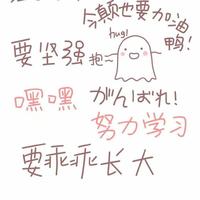 今颠也要加油鸭!
要坚强
hug!
抱~
嘿嘿
がんばれ!
努力学习
要乖乖长大